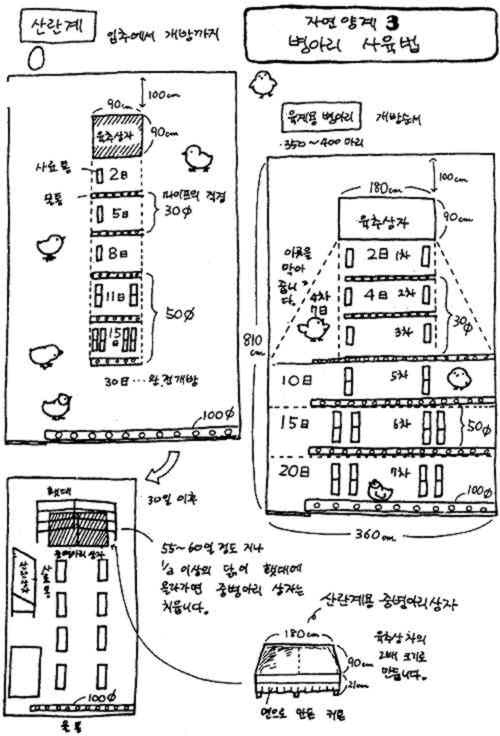 산란계
입추에서 개방까지
100cm
90cm
육추상자
90cm
사료통
2日
물통
파이프의 직경
30∅
5日
8日
11日
50∅
15日
30日…완전개방
100∅
자연 양계 3
병아리 사육법
육계용 병아리 개방순서
·350~400마리
100cm
180cm
육추상자
90cm
이곳을
막아
줍니다.
2日 1차
4日 2차
4차
7日
3차
30∅
810
cm
10日 5차
15日 6차
50∅
20日 7차
100∅
360cm
30일 이후
횃대
중병아리 상자
사료통
100∅
물통
55~60일 정도 지나
½ 이상의 닭이 횃대에
올라가면 중병아리 상자는
치웁니다.
산란계용 중병아리상자
180cm
90cm
21cm
육추상자의
2배 크기로
만듭니다.
면으로 만든 커튼